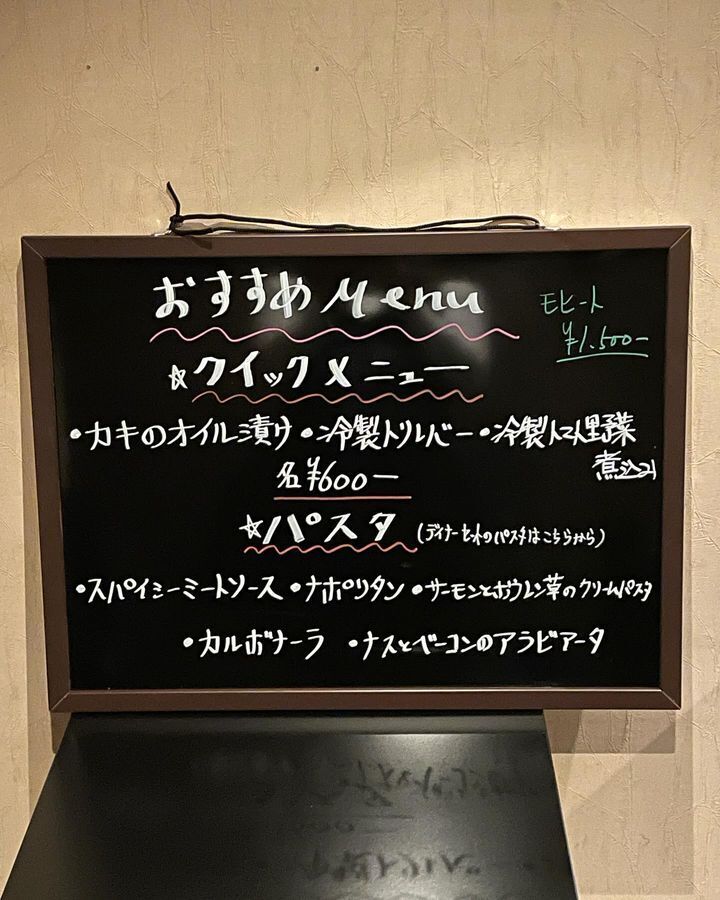 おすすめ Menu
モヒート
¥1.500-
☆クイックメニュー
・カキのオイル漬け ・冷製トリレバー ・冷製トマト野菜
煮込み
各¥600-
☆パスタ (ディナーセットのパスタはこちらから)
・スパイシーミートソース ・ナポリタン ・サーモンとホウレン草のクリームパスタ
・カルボナーラ ・ナスとベーコンのアラビアータ